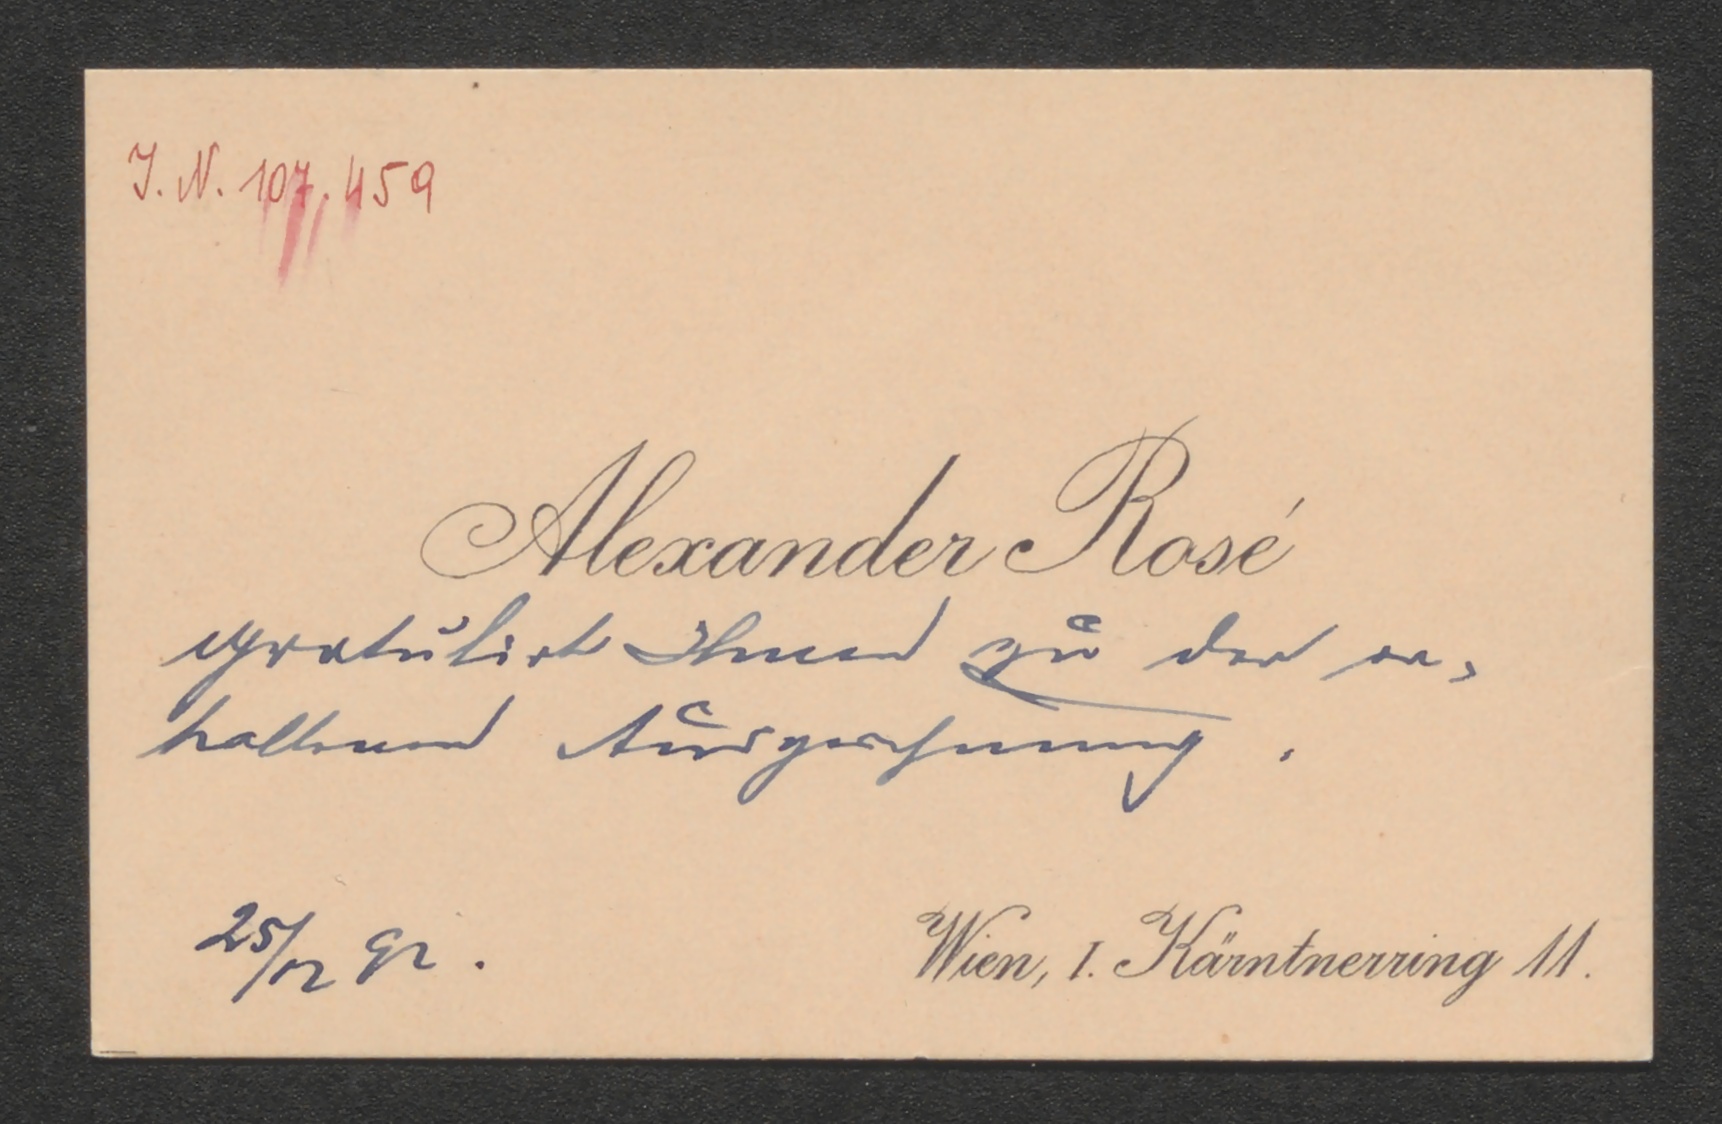 J. N. 107.459
Alexander Rosé
gratulirt Ihnen zu der er-
haltenen Auszeichnung.
25/12 92.
Wien, I. Kärntnerring 11.